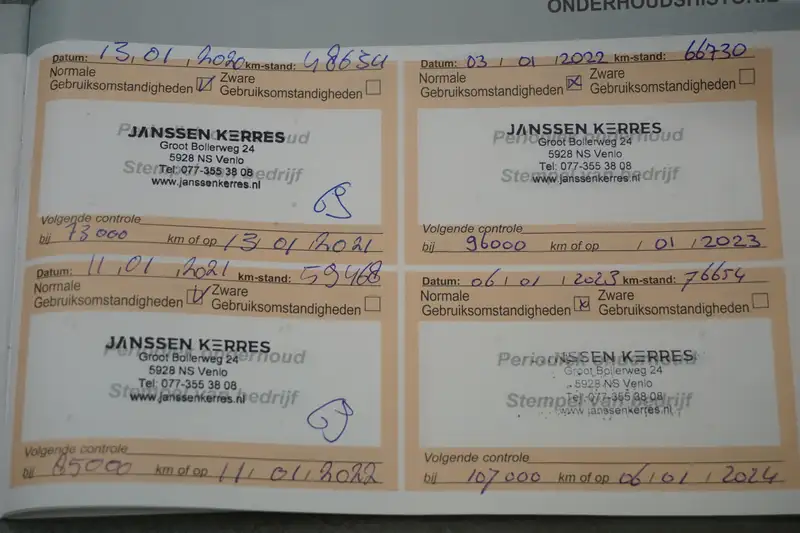 ONDERHOUDSHISTORIE
Datum: 13, 01, 2020 km-stand: 48634
Normale
Gebruiksomstandigheden
Zware
Gebruiksomstandigheden
Periodiek onderhoud
JANSSEN KERRES
Groot Bollerweg 24
5928 NS Venlo
Tel: 077-355 38 08
Stempel van bedrijf
www.janssenkerres.nl
Volgende controle
bij 73000 km of op 13, 01, 2021
Datum: 11, 01, 2021 km-stand: 59468
Normale
Gebruiksomstandigheden
Zware
Gebruiksomstandigheden
JANSSEN KERRES
Periodiek onderhoud
Groot Bollerweg 24
5928 NS Venlo
Tel: 077-355 38 08
Stempel van bedrijf
www.janssenkerres.nl
Volgende controle
bij 85000 km of op 11, 01, 2022
Datum: 03 / 01 / 2022 km-stand: 66730
Normale
Gebruiksomstandigheden
Zware
Gebruiksomstandigheden
JANSSEN KERRES
Periodiek onderhoud
Groot Bollerweg 24
5928 NS Venlo
Tel: 077-355 38 08
Stempel van bedrijf
www.janssenkerres.nl
Volgende controle
bij 96000 km of op / 01 / 2023
Datum: 06 / 01 / 2023 km-stand: 76654
Normale
Gebruiksomstandigheden
Zware
Gebruiksomstandigheden
Periodiek onderhoud
JANSSEN KERRES
Groot Bollerweg 24
5928 NS Venlo
Tel: 077-355 38 08
Stempel van bedrijf
www.janssenkerres.nl
Volgende controle
bij 107000 km of op 06 / 01 / 2024